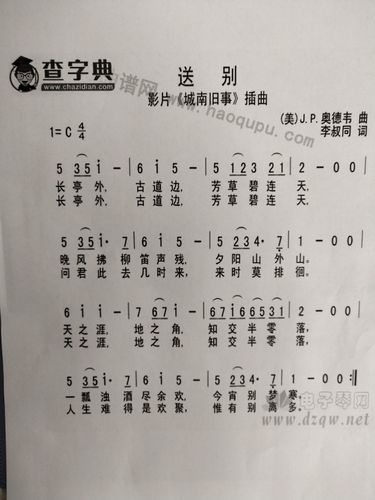 查字典
www.chazidian.com
谱网
www.haoqupu.com
送 别
影片《城南旧事》插曲
(美)J.P.奥德韦 曲
李叔同 词
1=C 4/4
5 35 i - | 6 i 5 - | 5 123 21 | 2 - 0 0 |
长亭外, 古道边, 芳草碧连天,
长亭外, 古道边, 芳草碧连天,
5 35 i· 7 | 6 i 5 - | 5 234· 7 | 1 - 0 0 |
晚风拂柳笛声残, 夕阳山外山。
问君此去几时来, 来时莫排徊。
6 i i - | 7 67 i - | 67 i6 65 31 | 2 - 0 0 |
天之涯, 地之角, 知交半零落,
天之涯, 地之角, 知交半零落,
5 35 i· 7 | 6 i 5 - | 5 234· 7 | 1 - 0 0 :||
一瓢浊酒尽余欢, 今宵别梦寒,
人生难得是欢聚, 惟有别离多,
电子琴网
www.dzqw.net